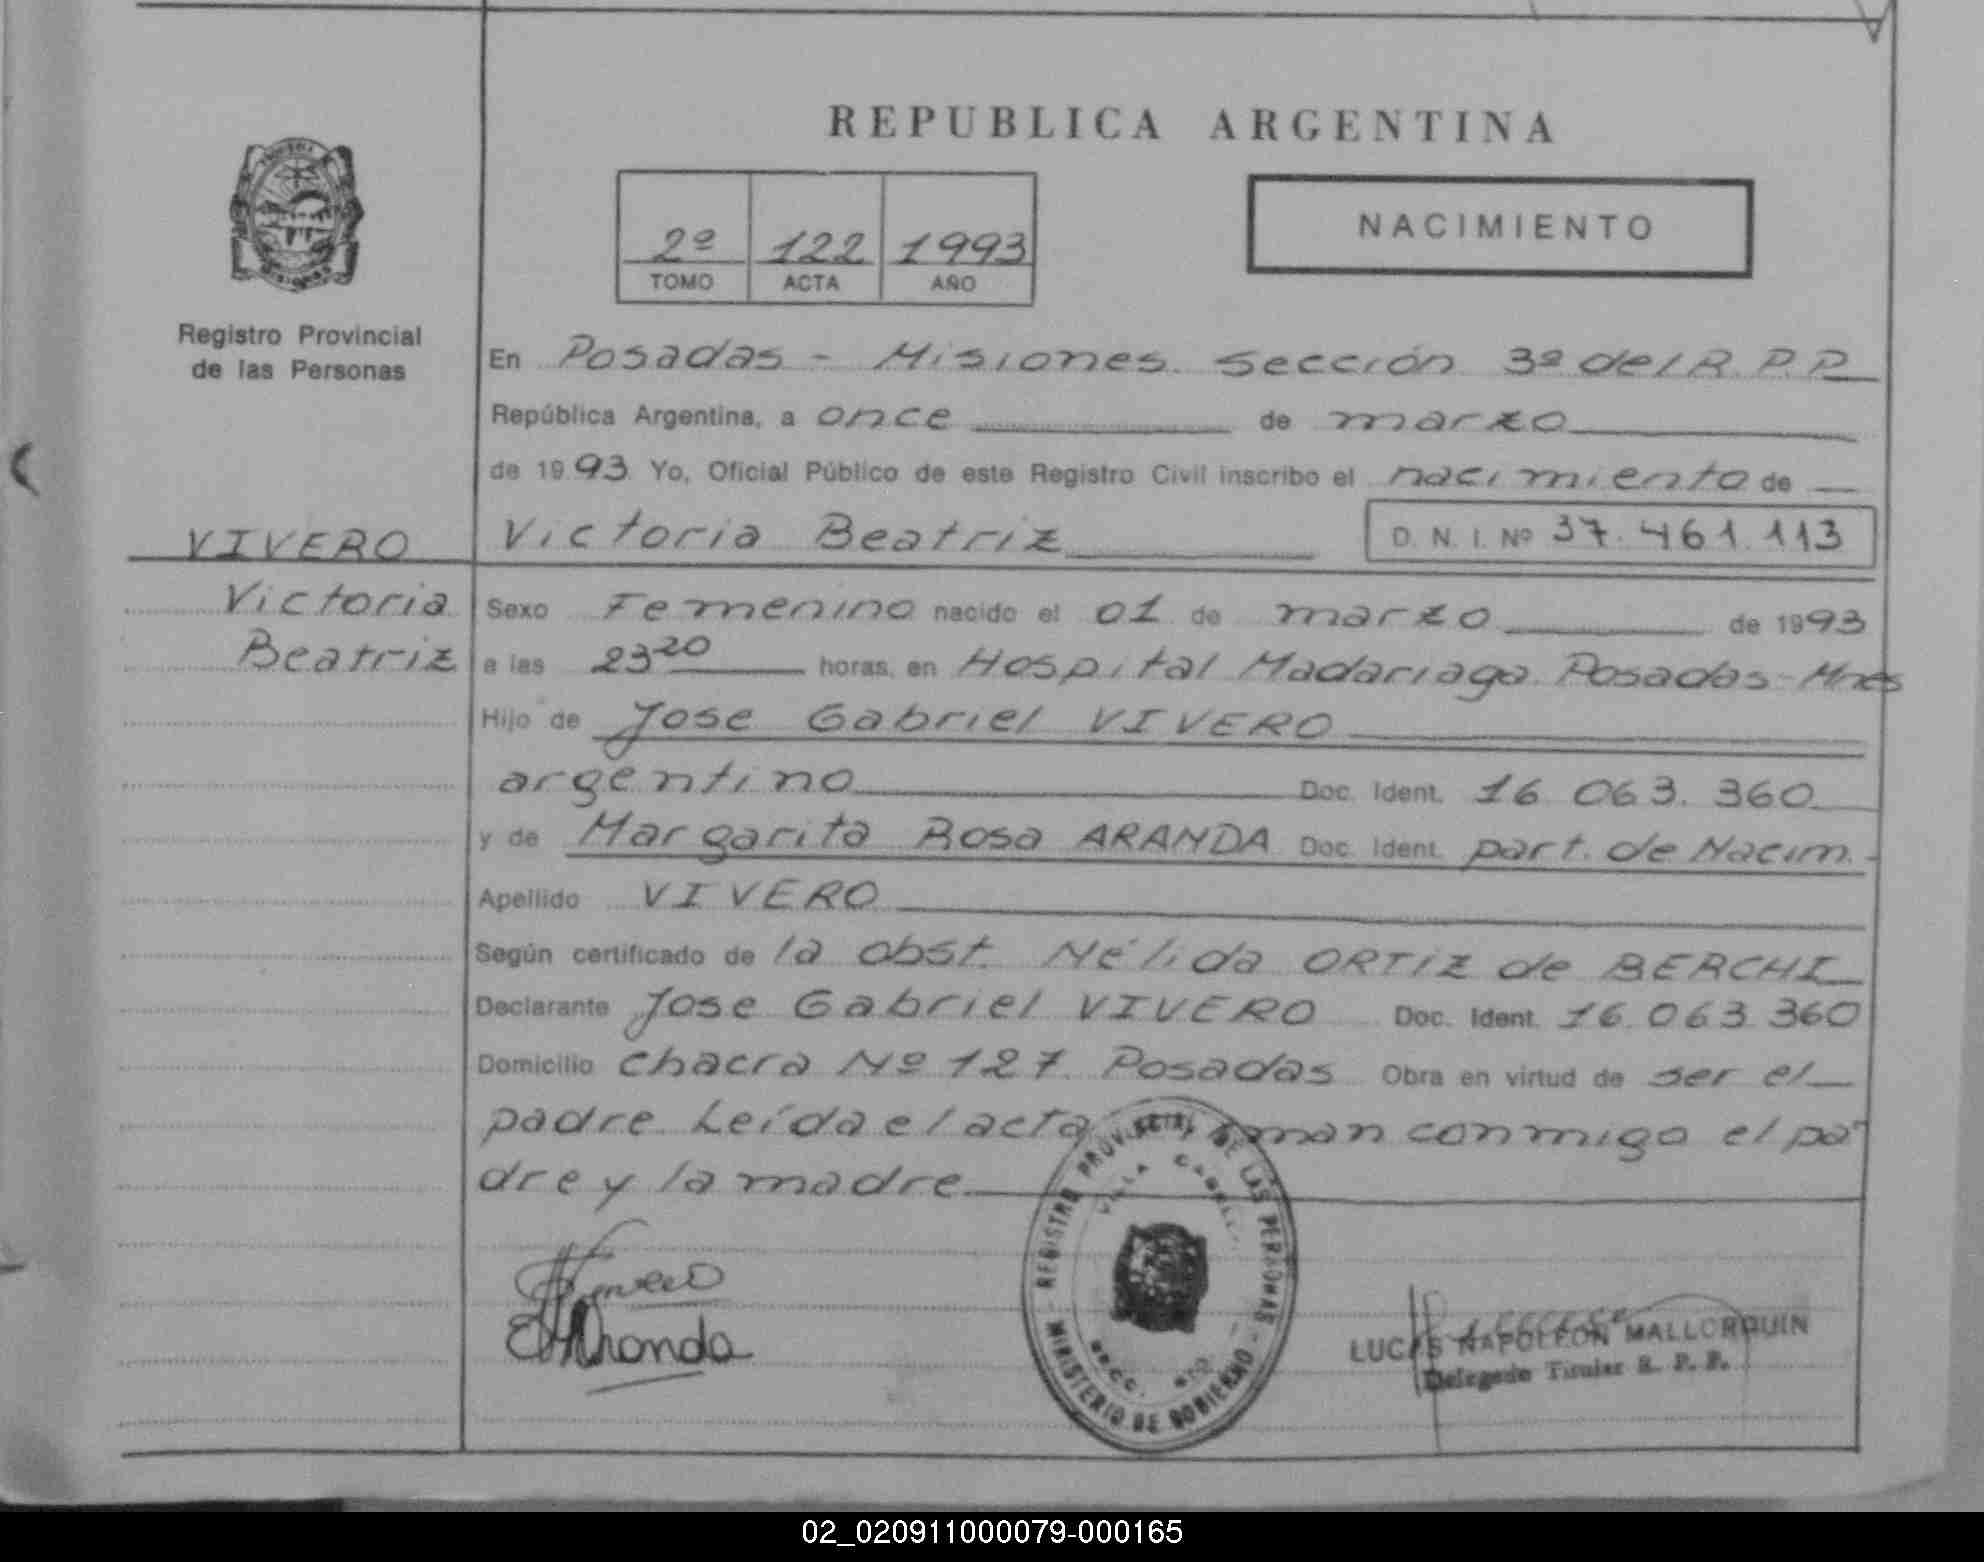 REPUBLICA ARGENTINA
2º 122 1993
TOMO ACTA AÑO
NACIMIENTO
Registro Provincial
de las Personas
VIVERO
Victoria
Beatriz
En Posadas - Misiones. Sección 3ª del R.P.P.
República Argentina, a once de marzo
de 1993 Yo, Oficial Público de este Registro Civil inscribo el nacimiento de
Victoria Beatriz D. N. I. Nº 37.461.113
Sexo Femenino nacido el 01 de marzo de 1993
a las 23 20 horas, en Hospital Madariaga Posadas - Mnes
Hijo de Jose Gabriel VIVERO
argentino Doc. Ident. 16.063.360
y de Margarita Rosa ARANDA Doc. Ident. part. de Nacim.
Apellido VIVERO
Según certificado de la obst. Nélida ORTIZ de BERCHI
Declarante Jose Gabriel VIVERO Doc. Ident. 16.063.360
Domicilio chacra Nº 127 Posadas Obra en virtud de ser el
padre. Leída el acta, firman conmigo el pa
dre y la madre
REGISTRO PROVINCIAL DE LAS PERSONAS - MINISTERIO DE GOBIERNO -
VILLA
LUCAS NAPOLEON MALLORQUIN
Delegado Titular R. P. P.
02_020911000079-000165